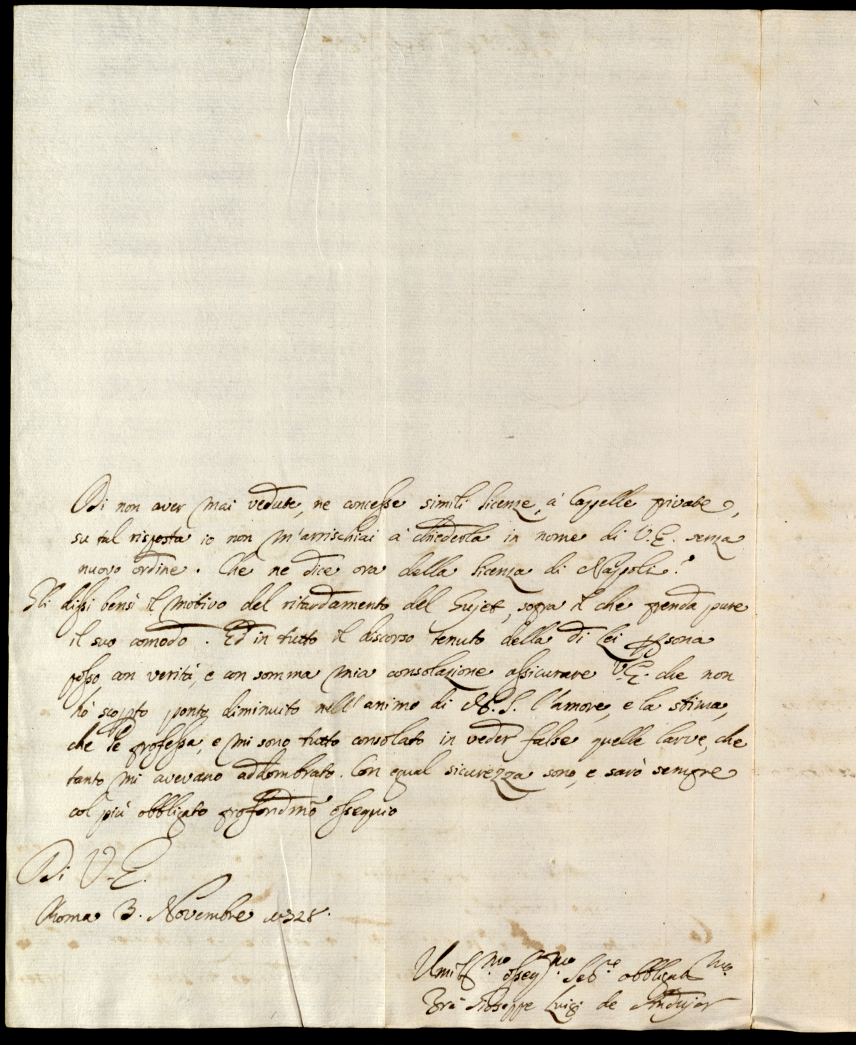 Di non aver mai vedute, ne concesse simili licenze, à Cappelle private,
su tal risposta io non m'arrischiai à chiederla in nome di V.E. senza
nuovo ordine. Che ne dice ora della licenza di Napoli?
Gli dissi bensì il motivo del ritardamento del Sujet, sopra il che prenda pure
il suo comodo. Ed in tutto il discorso tenuto della di Lei psona
posso con verità, e con somma mia consolazione assicurare V.E. che non
hò scopto ponto diminuito nell'animo di N.S. l'amore, e la stima,
che le professa, e mi sono tutto consolato in veder false quelle larve, che
tanto mi avevano addombrato. Con egual sicurezza sono, e sarò sempre
col più obbligato profondmo ossequio
Di V.E.
Roma 3. Novembre 1728.
Umilmo ossegmo Sebre obbligatmo
Fra Gioseppe Luigi de Andujar